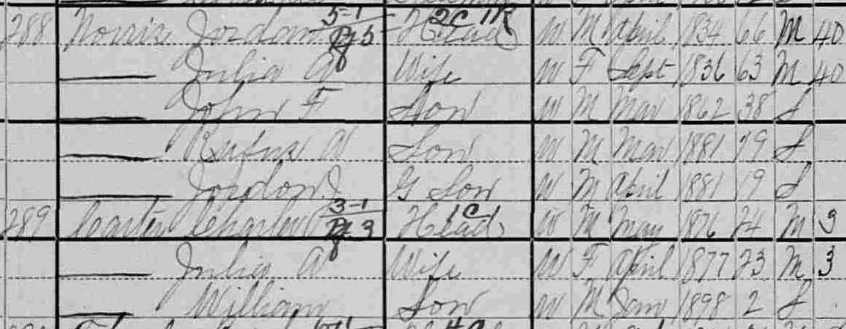 288 Norris Jordan 5-1 Head 2C 1R W M April 1834 66 M 40
— Julia A Wife W F Sept 1836 63 M 40
— John F Son W M Mar 1862 38 S
— Rufus A Son W M Mar 1881 19 S
— Jordon J G Son W M April 1881 19 S
289 Carter Charles 3-1 Head 1C W M May 1876 24 M 3
— Julia A Wife W F April 1877 23 M 3
— William Son W M Jan 1898 2 S